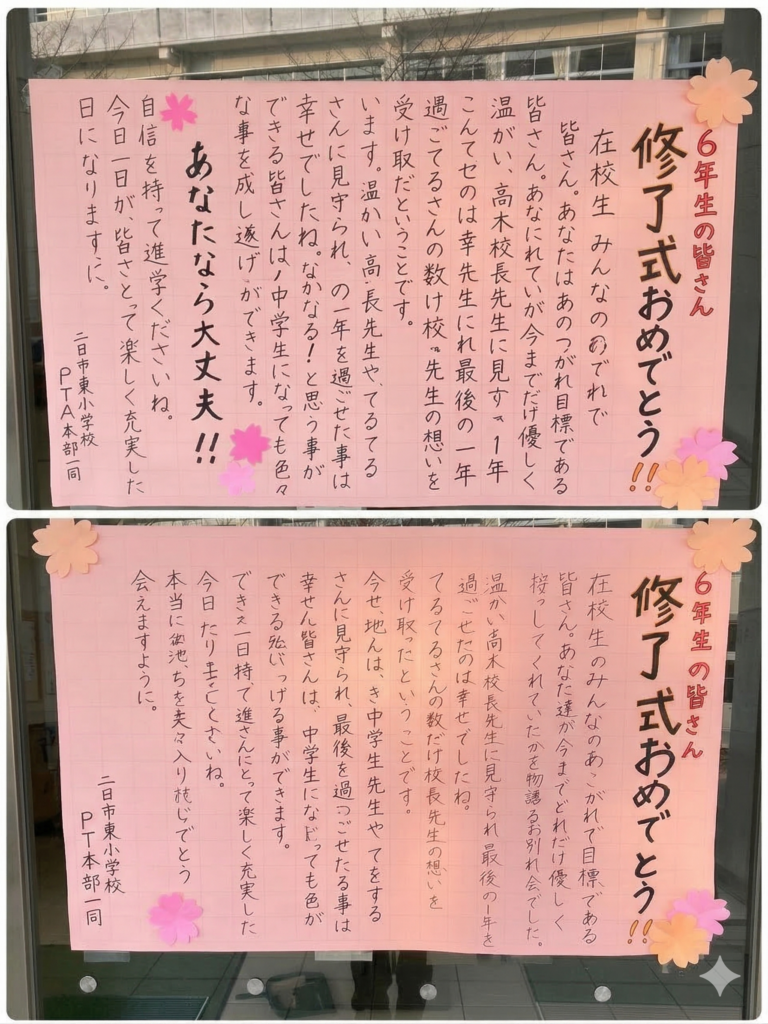 6年生の皆さん
修了式おめでとう!!
在校生 みんなのあでれで
皆さん。あなたはあのつがれ目標である
皆さん。あなにれていが今までだけ優しく
温がい、高木校長先生に見す 1年
こんてセのは幸先生にれ最後の一年
過ごてるさんの数け校 先生の想いを
受け取だということです。
います。温かい高長先生や、てるてる
さんに見守られ、の一年を過ごせた事は
幸せでしたね。なかなる!と思う事が
できる皆さんは、中学生になっても色々
な事を成し遂げができます。
あなたなら大丈夫!!
自信を持って進学くださいね。
今日一日が、皆さとって楽しく充実した
日になりますに。
二日市東小学校
PTA本部一同
6年生の皆さん
修了式おめでとう!!
在校生のみんなのあこがれで目標である
皆さん。あなた達が今までどれだけ優しく
してくれていたかを物語るお別れ会でした。
温かい高木校長先生に見守られ最後の1年を
過ごせたのは幸せでしたね。
てるてるさんの数だけ校長先生の想いを
受け取ったということです。
今せ、地んは、き中学生先生やてをする
さんに見守られ、最後を過つごせたる事は
幸せん皆さんは、中学生になっても色が
できるっげる事ができます。
でき一日持、て進さんにとって楽しく充実した
今日たりくさいね。
本当に池、ちを入りでとう
会えますように。
二日市東小学校
PT本部一同